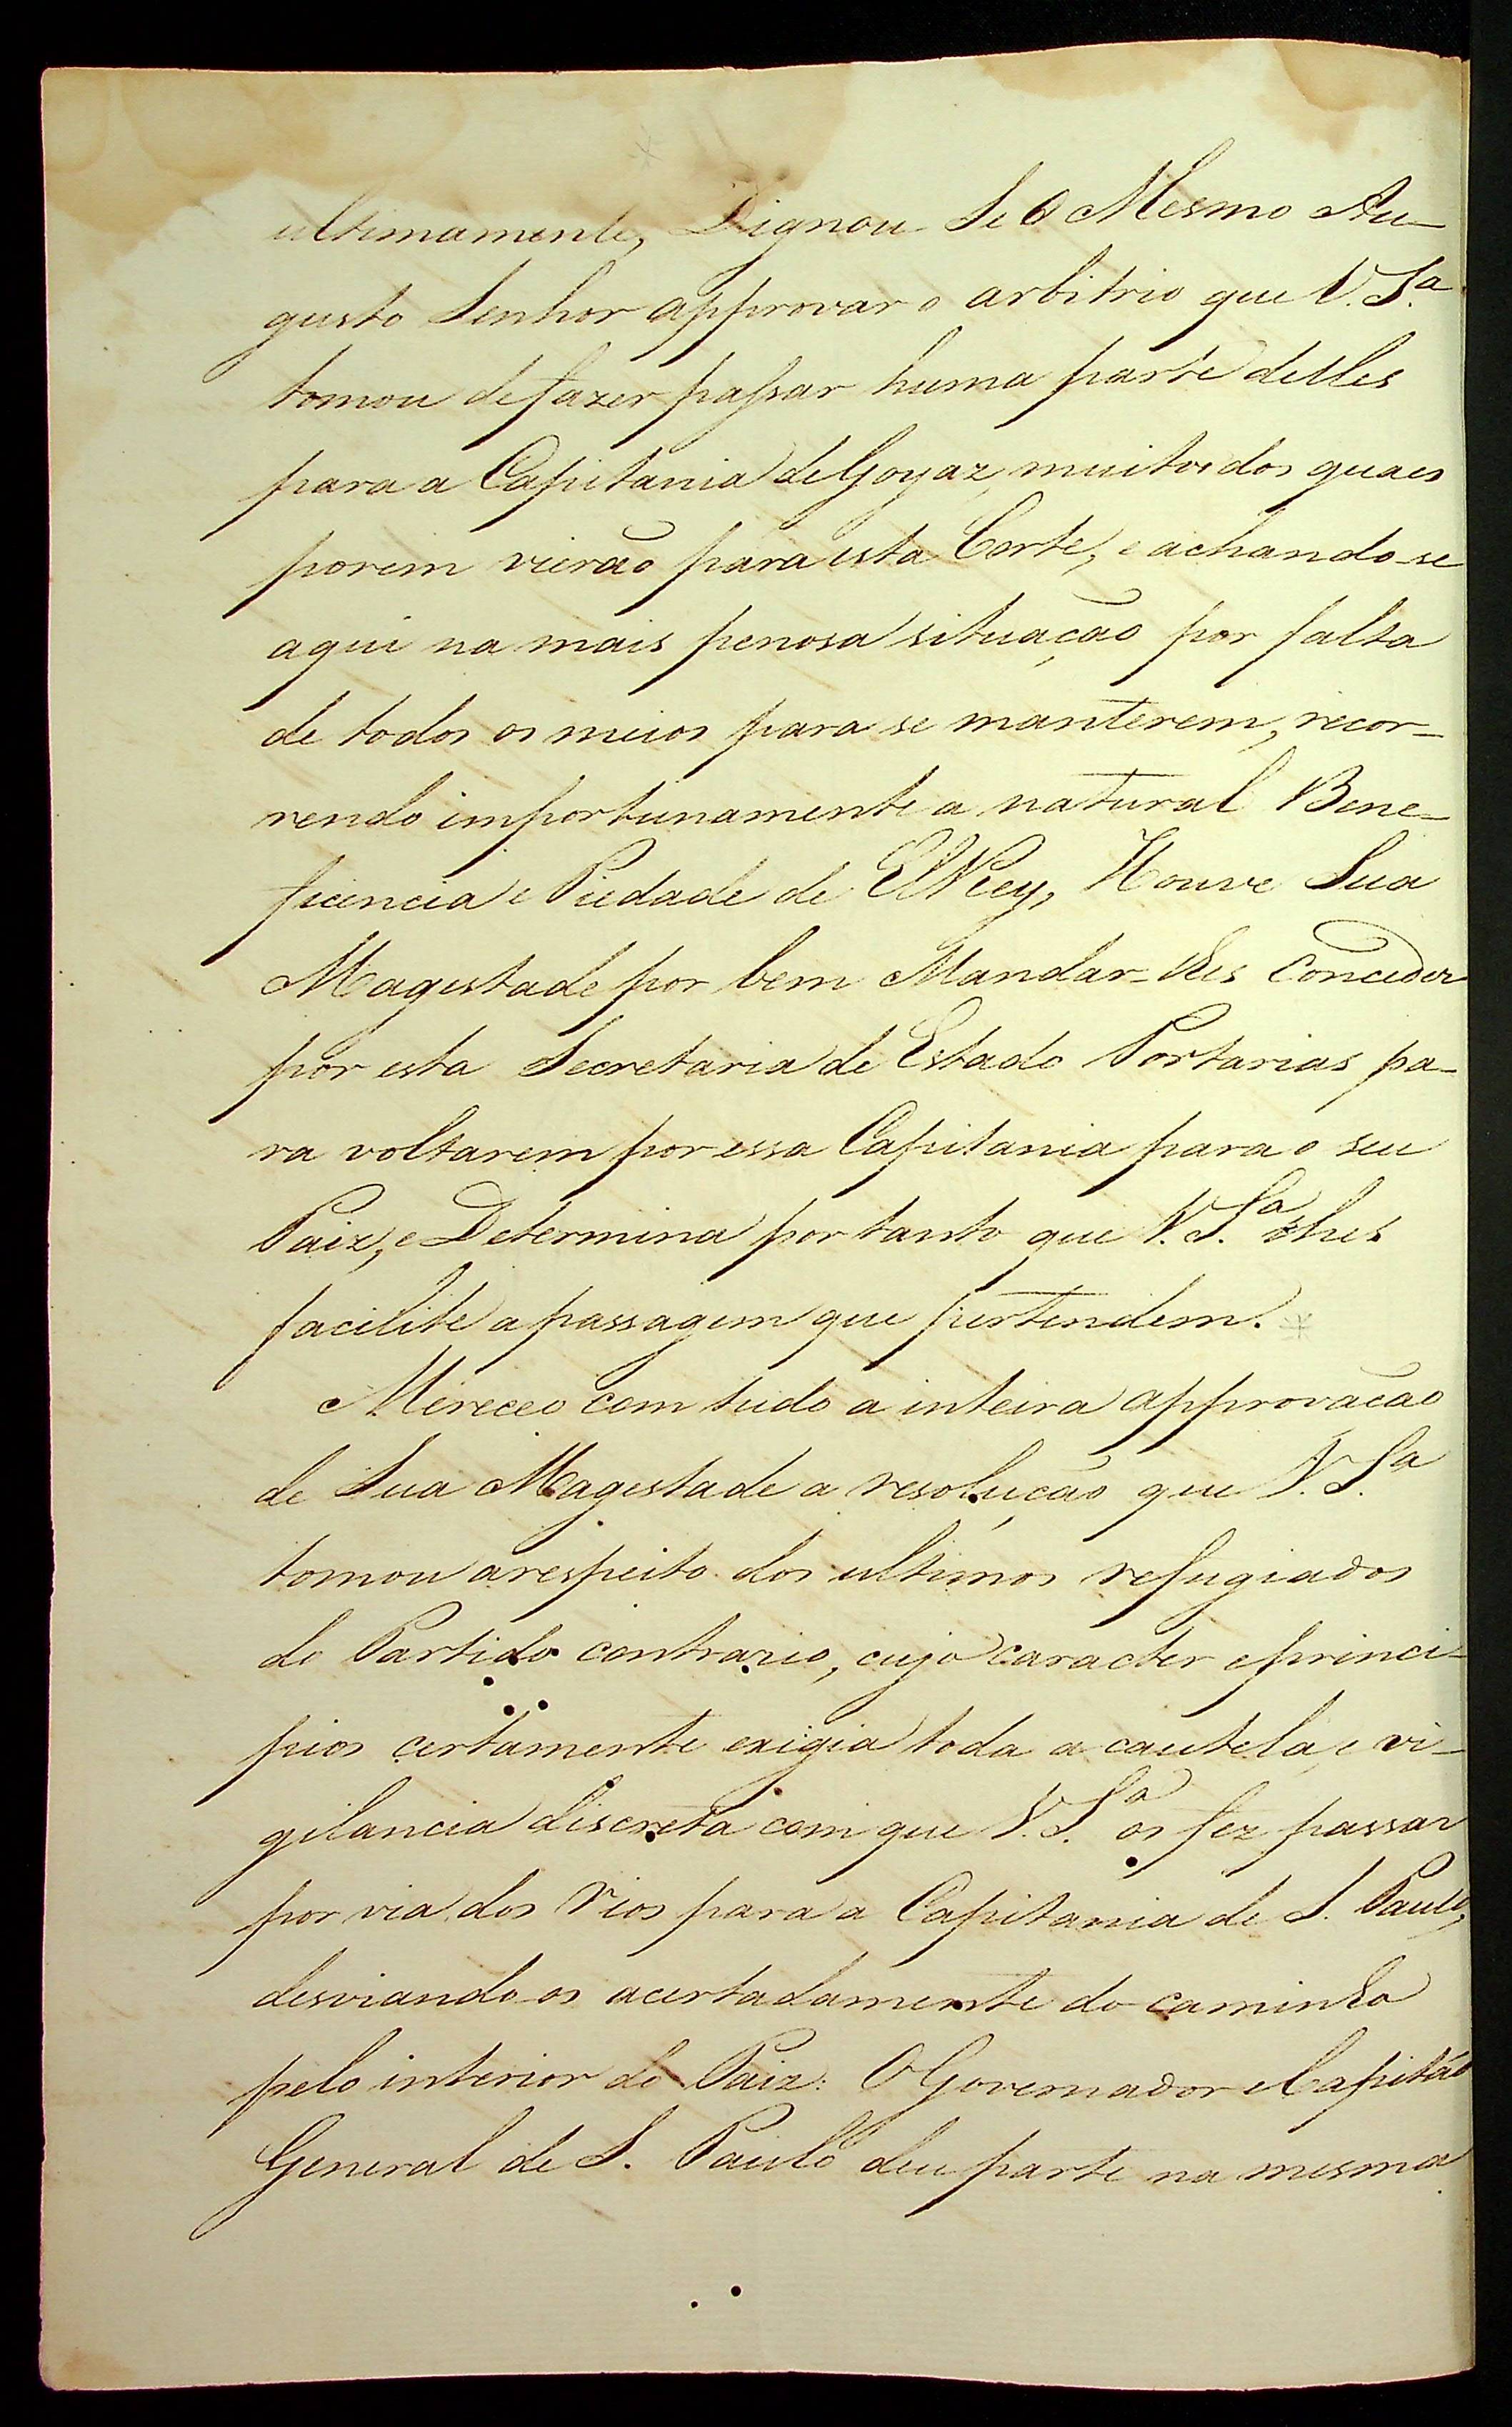 ultimamente, Dignou Se O Mesmo Au-
gusto Senhor approvar o arbitrio que V. S.ª
tomou de fazer passar huma parte delles
para a Capitania de Goyaz, muitos dos quaes
porem vierão para esta Corte, e achando-se
aqui na mais penosa situação por falta
de todos os meios para se manterem, recor-
rendo importunamente a natural Bene-
ficencia e Piedade de ElRey, Houve Sua
Magestade por bem Mandar-lhes Conceder
por esta Secretaria de Estado Portarias pa-
ra voltarem por essa Capitania para o seu
Paiz, e Determina por tanto que V. S.ª lhes
facilite a passagem que pertendem.
Mereceo com tudo a inteira approvação
de Sua Magestade a resolução que V. S.ª
tomou a respeito dos ultimos refugiados
do Partido contrario, cujo caracter e princi-
pios certamente exigia toda a cautela, e vi-
gilancia discreta com que V. S.ª os fez passar
por via dos rios para a Capitania de S. Paulo,
desviando os acertadamente do caminho
pelo interior do Paiz: O Governador e Capitão
General de S. Paulo deu parte na mesma